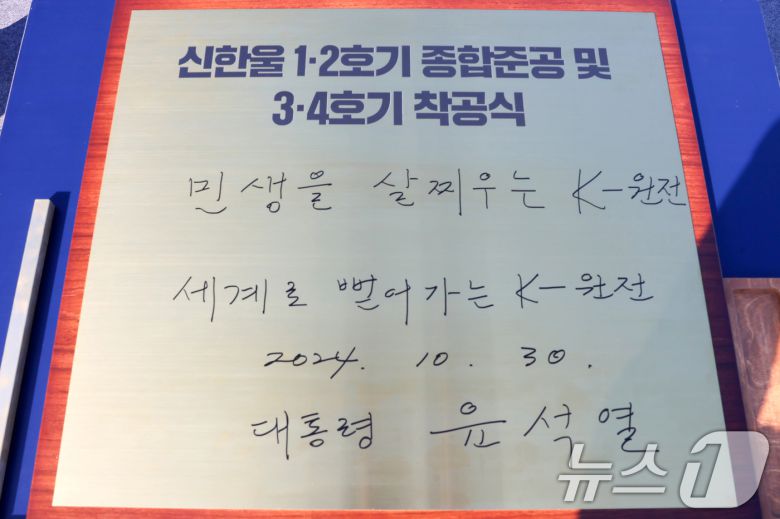 신한울 1·2호기 종합준공 및
3·4호기 착공식
민생을 살찌우는 K-원전
세계로 뻗어가는 K-원전
2024. 10. 30.
대통령 윤석열
뉴스1